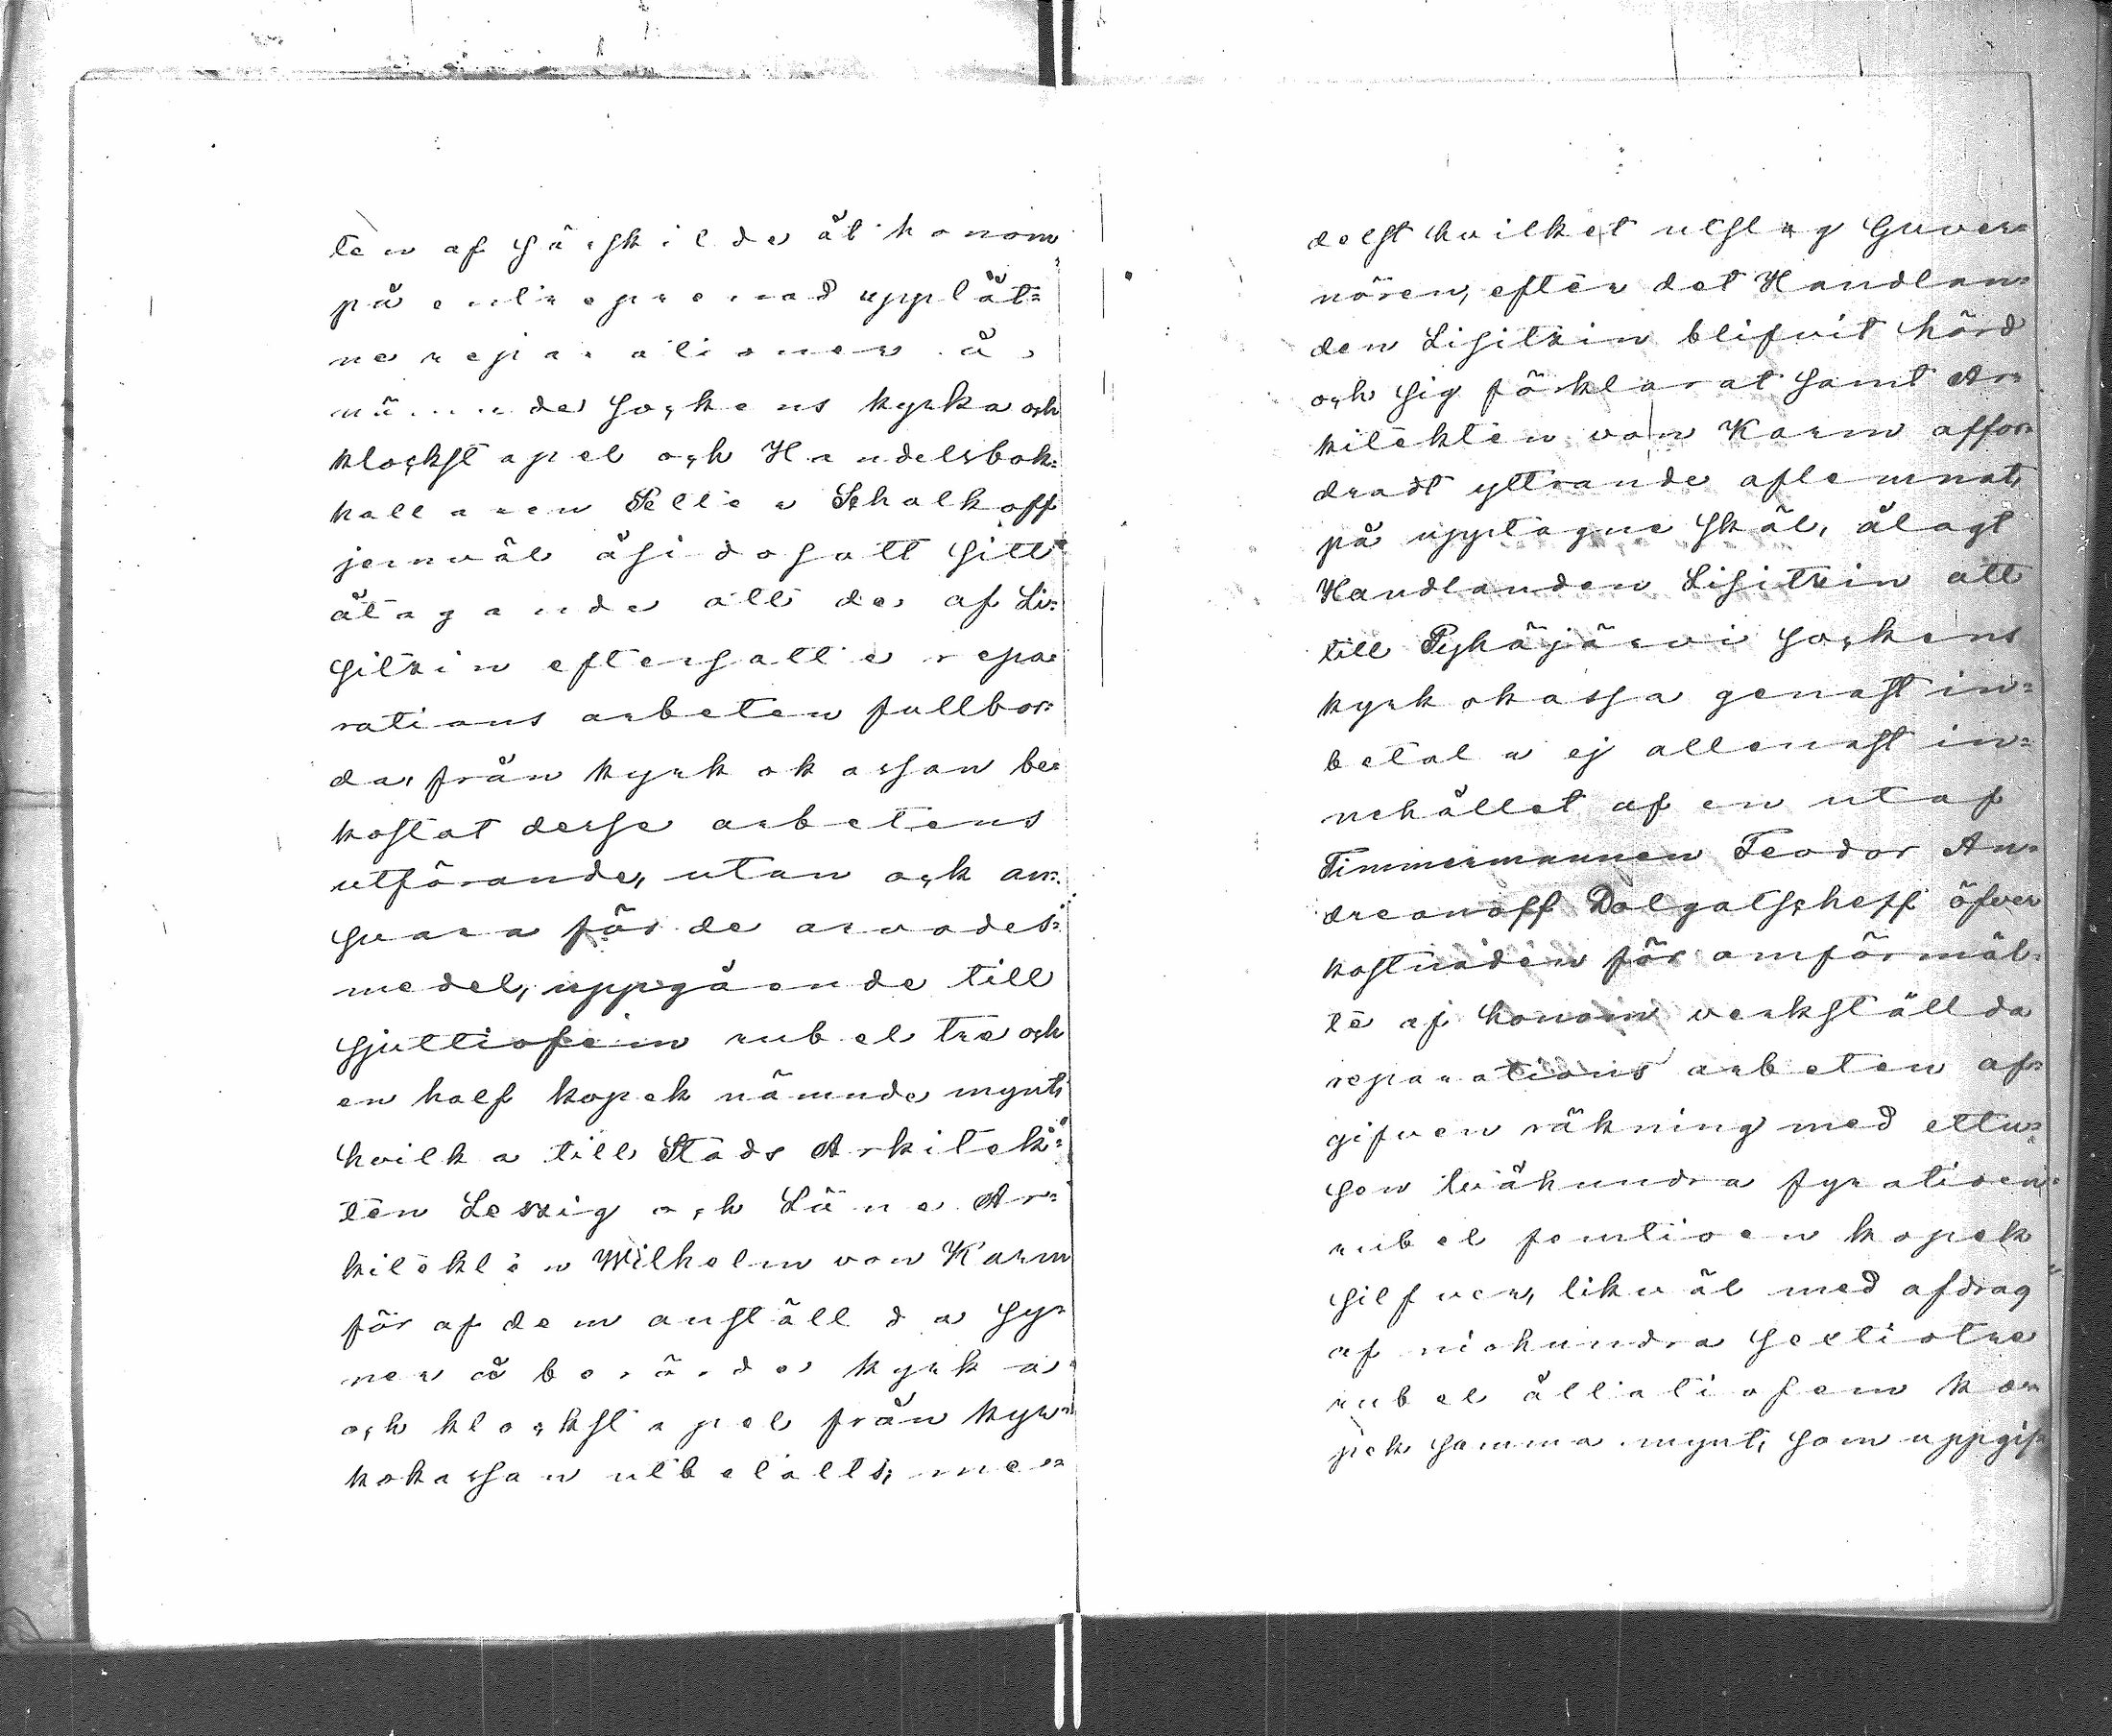 ten af särskilde åt honom
på entreprenad upplåt=
ne reparationer å
nämnde sockens kyrka och
klockstapel och Handelsbok=
hallaren Peller Schalkoff
jemväl åsidosatt sitt
åtagande att de af Li=
sitzin eftersatte repa=
rations arbeten fullbor=
da, från kyrkokassan be=
kostat desse arbetens
utförande, utan ock an=
svara för de arvodes=
medel, uppgående till
sjuttiofem rubel tre och
en half kopek nämnde mynt,
hvilka till Stads Arkitek=
ten Leszig och Läns Ar=
kitekten Wilhelm von Karm
för af dem anställda sy=
ner å berörde kyrka
och klockstapel från kyr=
kokassan utbetalts; me=
delst hvilket utslag Guver=
nören, efter det Handlan=
den Lisitzin blifvit hörd
och sig förklarat samt Ar=
kitekten von Karm affor=
dradt yttrande aflemnat,
på upptagne skäl, ålagt
Handlanden Lisitzin att
till Pyhäjärvi sockens
kyrkokassa genast in=
betala ej allenast in=
nehållet af en utaf
Timmermannen Feodor An=
dreanoff Dolgatscheff öfver
kostnaden för omförmäl=
te af honom verkställda
reparations arbeten af=
gifven räkning med ettu=
sen tvåhundra fyratioen
rubel femtioen kopek
silfver, likväl med afdrag
af niohundra sextiotre
rubel åttatiofem ko=
pek samma mynt, som uppgif=